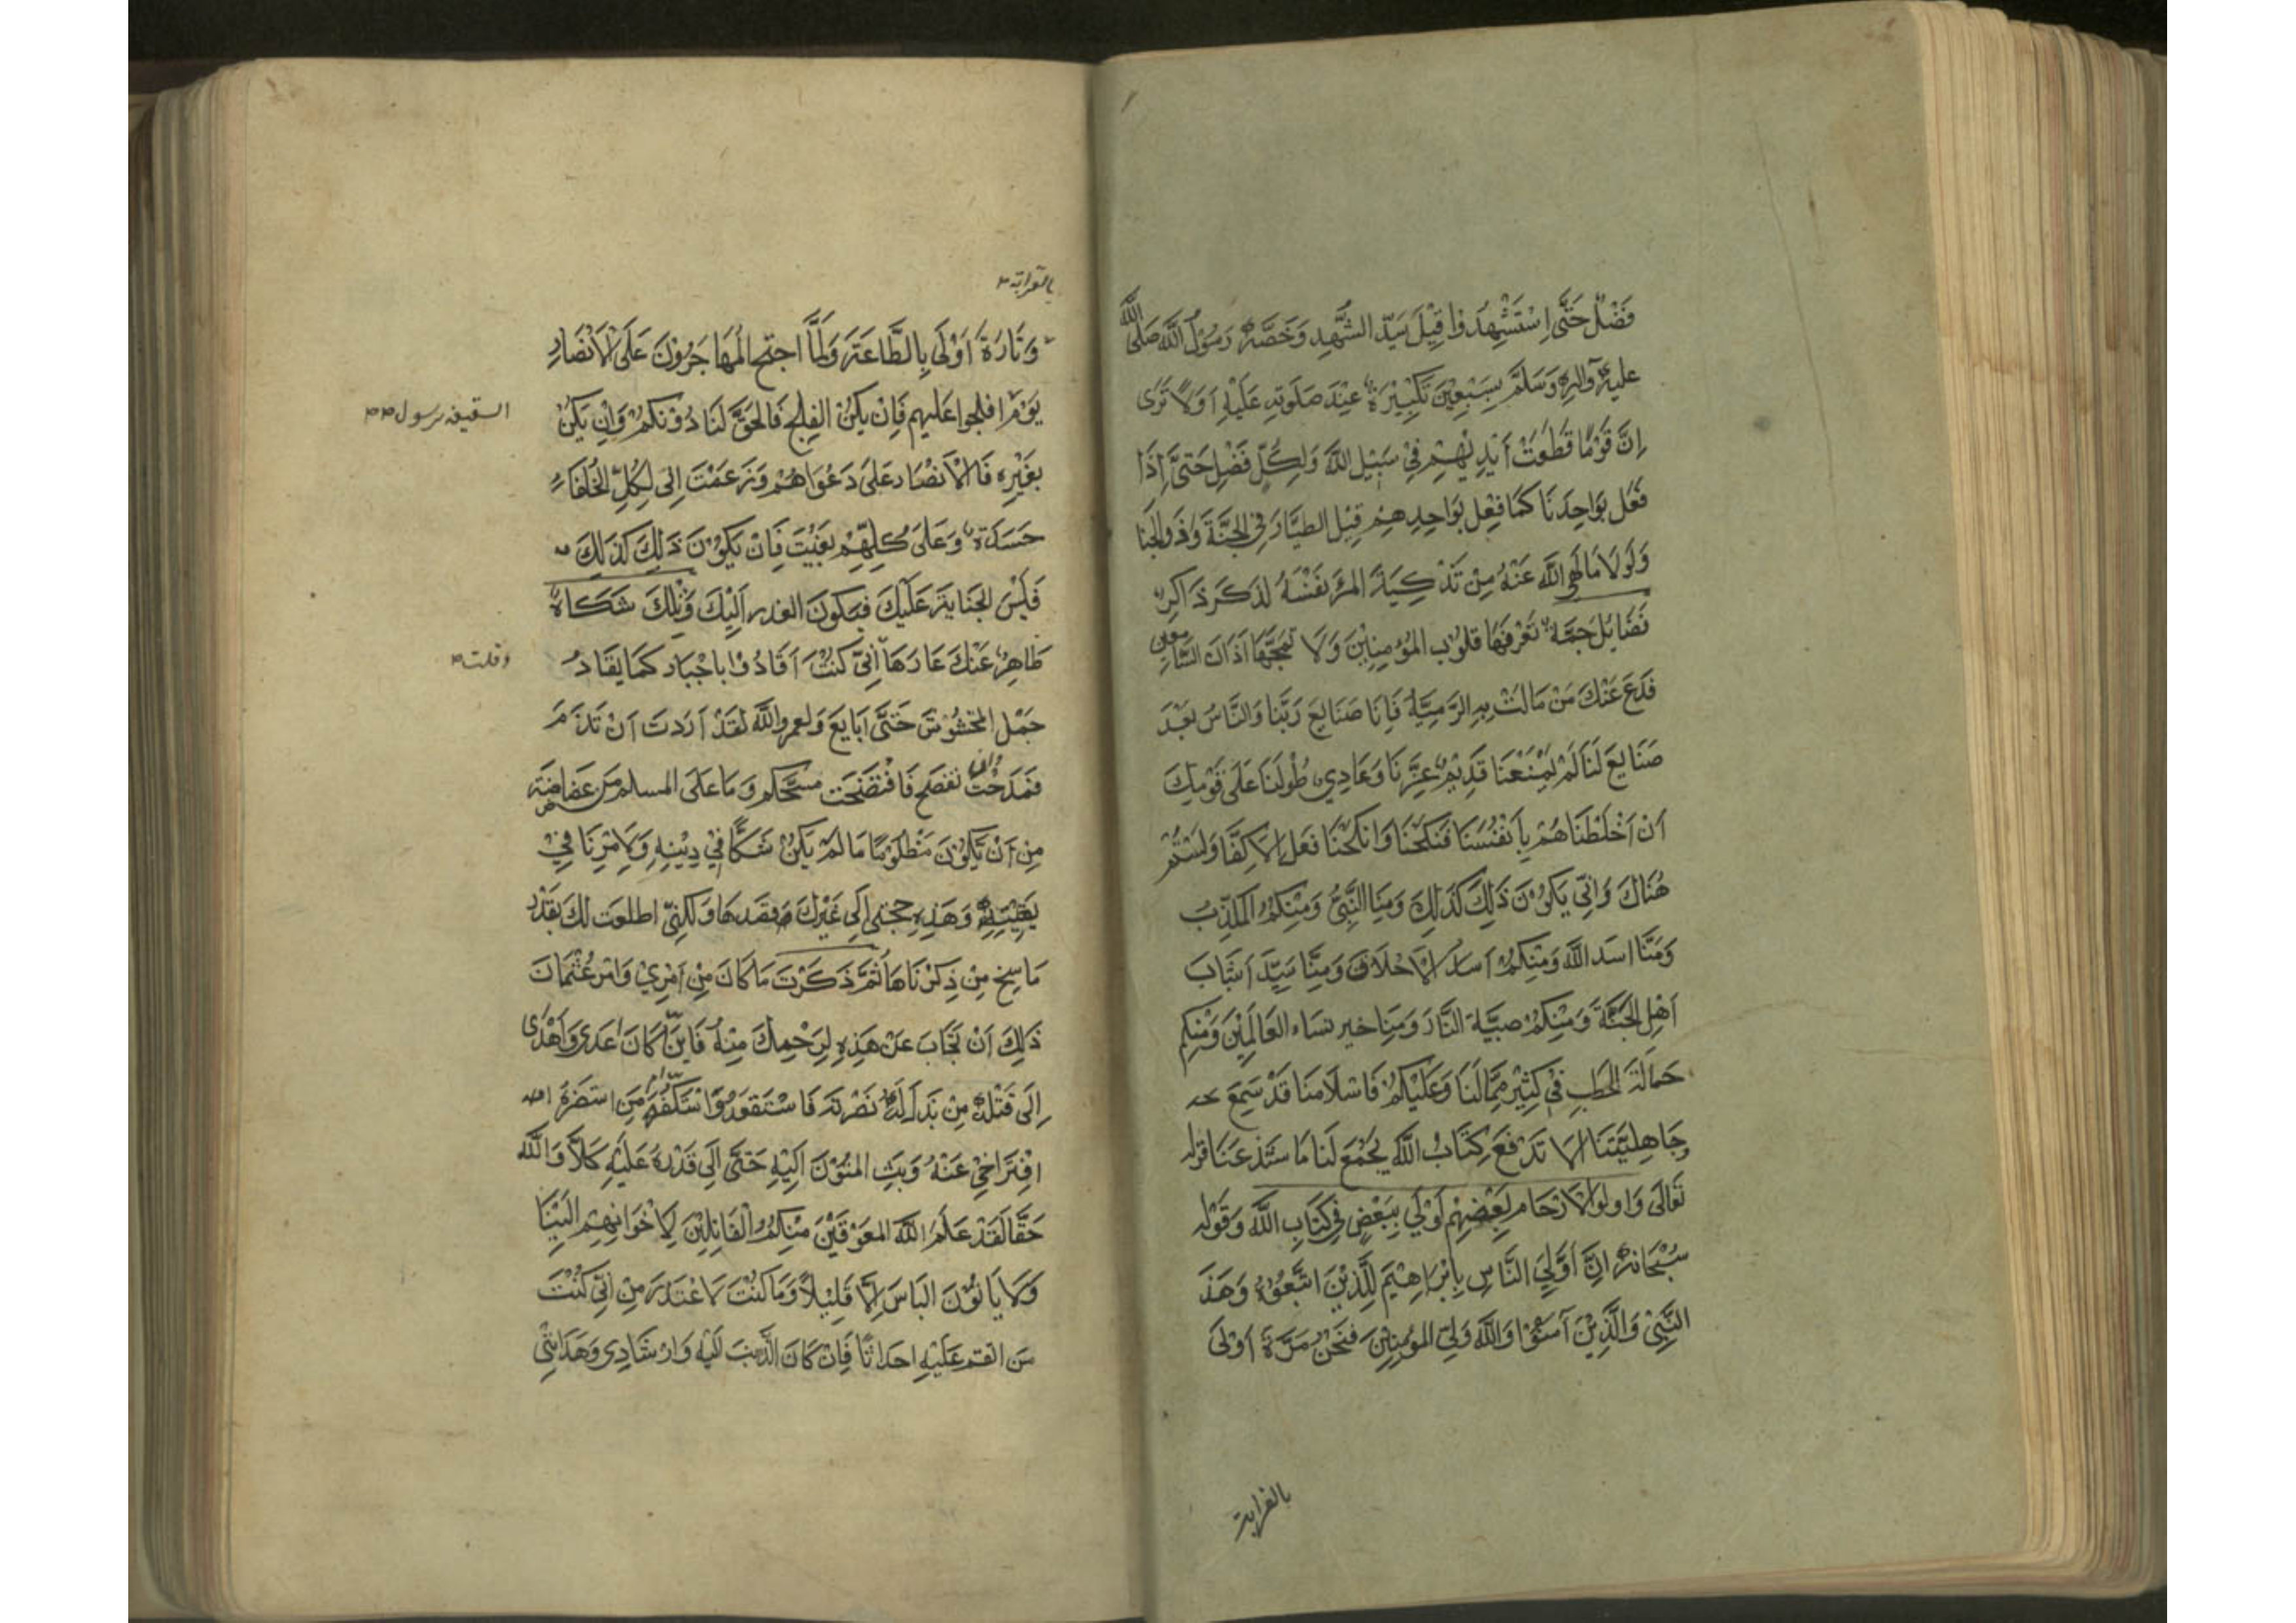 فَضْلٌ حَتَّى اِسْتَشْهِدَوا قِيْلَ سَيّدَ الشَّهِدِ وَخَصَّهُ رَسُوْلُ اللَّه صَلَى اللَّه
عليهِ وآلِهِ وَسَلَّمَ بِسَبْعِيْنَ تَكْبِيْرَة عِنْدَ صَلَوتِهِ عَلَيْهِ اَوَلَا تَرَى
اِنَّ قَوْمًا قَطَعَتْ اَيْدِيْهِمْ فِيْ سَبِيْلِ اللَّه وَلِكُلٍّ فَضْل حَتَّى اِذَا
فَعَل بِوَاحِدِنَا كَمَا فِعْل بِوَاحِدِهِمْ قِيْل الطَيَّار فِي الجَنَّةَ وَذَوالجَنا
وَلَوْلَا مَا لَهى اللَّه عَنْهُ مِنْ تَذْكِيَةَ المَرْء نَفْسَهُ لَذَكَرَ ذَاكِر
نَضَايِلَ جَمَّة تَعْرِفهَا قلوْب المؤمِنِيْنَ وَلَا تمجّهَا اَذَان السَّامعين
فَدَعَ عَنْكَ مَنْ مَالَتْ بِهِ الرَمِيَّة فَاِنَا صَنَايعَ رَبّنا وَالنَّاسُ بَعْدَ
صَنَايعَ لَنَا لَمْ يَمْنَعْنَا قَدِيْم عِزّنَا وَعَادِي طُولَنَا عَلَى قَوْمِكَ
اَنْ اَخْلَطْنَاهُمْ بِاَنْفُسَنَا فَنَكَحْنَا وَاَنْكَحْنَا فَعَل الاكِفَّا وَلَسْتُمْ
هُنَاكَ وَانّى يَكوْنَ ذَلِكَ كَذَلِكَ وَمِنا النَّبِيُّ وَمِنْكمُ المكَذِّب
وَمِنَّا اسَد اللَّه وَمِنْكمُ اسَد الاحْلَاف وَمِنَّا سَيِّدَ اَشَبَاب
اَهْلِ الجَنَّةَ وَمِنْكمُ صبيَّة النَّار وَمِنا خير نسَاء العَالَمِيْنَ وَمِنْكم
حَمالَة الحَطَبِ فِيْ كَثِيْر مِمَّا لَنَا وَعَلَيْكم فَاسْلَامنَا قَدْ سَمِعَ
وَجَاهِليَّتنَا لا تَدْفَعَ وَكِتَابُ اللَّه يَجْمَع لَنا مَا سَنذعَنَا قوله
تَعَالَى وَاولوالاَرْحَام بَعْضهُم اَوْلَى بِبَعْضٍ فِي كِتَابِ اللَّه وَقَوْله
سُبْحَانهُ اِنَّ اَوْلَى النَّاسِ بِاِبْرَاهِيْمَ لَلَّذِيْنَ اتَّبَعُوْهُ وَهَذَ
النَّبِيْ وَالَّذِيْنَ آمَنُوْا وَاللَّه وَلِيّ المؤمِنِيْنَ فَنَحْنُ مَرَّةَ اَوْلَى
بالقرابة
بالقرابة
وَتَارَةَ اَوْلَى بِالطَّاعَةَ وَلَمَّا اجتح المُهَاجَرُوْنَ عَلَى الاَنْصَار
يَوْمَ افلجوا عَليهم فَاِنْ يَكنُ الفلج فَالحَقّ لَنَا دُوْنَكُمْ وَاِنِ يَكنْ
السقيفه برسول
بغَيْرِهِ فَالاَنْصَار عَلَى دَعْوَاهُمْ وَزَعَمْتَ اِنى لِكُلِّ الخُلَفَاء
حَسَدَة وَعَلَى كُلِّهِمْ بَغَيْتَ فَاِنْ يَكوْنَ ذَلِكَ كَذَلِكَ
فَلَيْسَ الجَنَايَة عَلَيْكَ فيكونَ العذر اَلَيْكَ وَتِلْكَ شَكَاة
ظَاهِر عَنْكَ عَارهَا اِنّى كُنْتُ اَقَادُ وْا بِاجْبَار كَمَا يقَادُ
وقلت
جَمْل المَخشُوْش حَتَّى اَبَايعَ وَلعمروالله لَقَدْ اَرَدتَ اَنْ تَذَمَ
فَمَدَحْتَ وان تفصَح فَافْتَضَحَت وَمَا عَلَى المسلم مِن غَضَاضَة
مِن اَنْ يَّكُوْنَ مَظْلَوْمًا مَا لَمْ يَكنْ شَكًّا فِيْ دِيْنِهِ وَلَا مْرتَا فِيْ
يَقِيْنِهِ وَهَذِهِ حجتى اَلَى غَيْرِكَ قصَدهَا وَلكِنّى اطلعت لكَ بقَدْر
مَا سخ مِنْ ذِكرْنَاهَا ثُمَّ ذَكَرْتَ مَا كَانَ مِنْ اَمْرِيْ وَامْر عُثْمَانَ
ذَلِكَ اَنْ تُجَابَ عَنْ هَذِهِ لِرَحْمِكَ مِنْهُ فَايّنَا كَانَ اَعدَى وَاَهْدَى
اِلَى قَتْلِهُ مِنْ بَذل لَهُ نَصْرتَه فَاسْتَقعَدهُ وَاسْتَكَفّهُ اَم مَنِ استَضَرَهُ
افْتَرَاخِيْ عَنْهُ وَبَثِ المنُوْنَ اَلِيْهِ حَتَّى اَلَى قَدْرهُ عَلَيْهِ كَلّا وَاللَّه
حَقَّا لَقَدْ عَلَمَ اللَّه المعَوْقِيْنَ مِنْكمُ والقَائِلِيْنَ لِاِخْوَانِهِمْ اَلَيْنَا
وَلَا يَاتُوْنَ البَاسَ اِلَّا قَلِيْلًا وَمَا كُنْتَ لَاعْتَذرَ مِنْ اَنّى كُنْتَ
مَن انقم عَلَيْهِ احداثًا فَاِنْ كَانَ الذَّنبَ اَلَيْهِ وَارْشَادِى وَهَدَايتْى